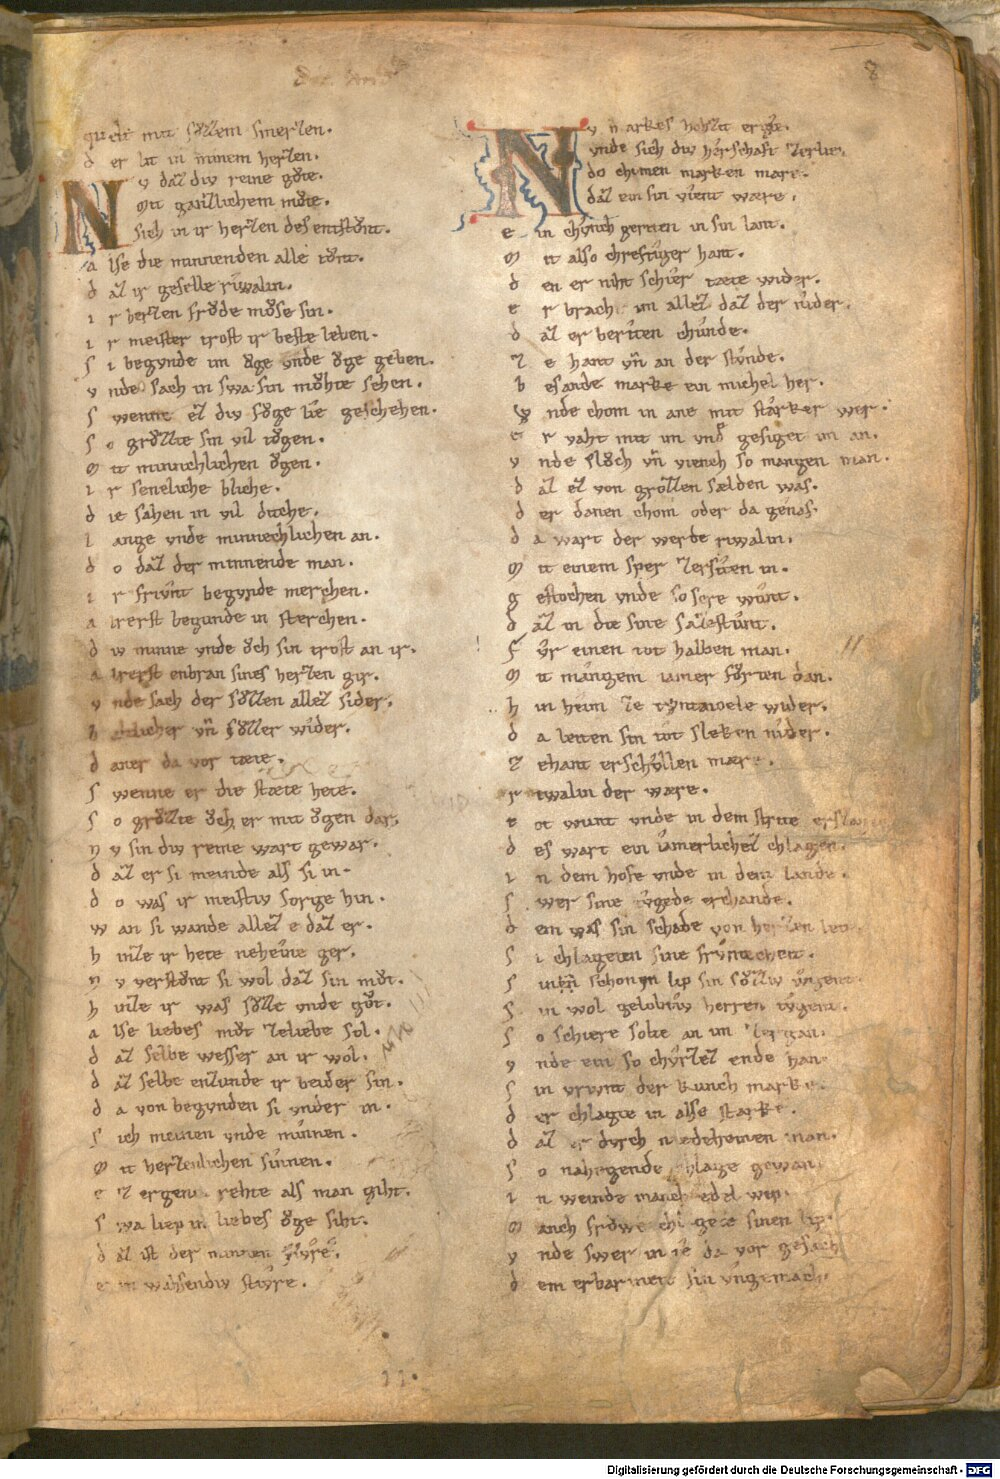 8
quelt mit sůzzem smerzen.
d er lit in minem herzen.
N v daz div reine gůte.
Mit ganzlichem můte.
sich in ir herzen des entstůnt.
a lse die minnenden alle tůnt.
d az ir geselle riwalin.
i r herzen frǒde můse sin.
i r meister trost ir beste leben.
s i begunde im ǒge vnde ǒge geben.
v nde sach in swa sin mǒhte sehen.
s wenne ez div fůge lie geschehen.
s o grůzte sin vil tǒgen.
m it minnchlichen ǒgen.
i r seneliche bliche.
d ie sahen in vil diche.
l ange vnde minnechlichen an.
d o daz der minnende man.
i r friunt begunde merchen.
a lrerst begunde in sterchen.
d iv minne vnde ǒch sin trost an ir.
a lrerst enbran sines herzen gir.
v nde sach der sůzzen allez sider.
licher vn̄ sůzzer wider.
d aner da vor tæte.
s wenne er die stæte hete.
s o grůzte ǒch er mit ǒgen dar.
n v sin div reine wart gewar.
d az er si meinde als si in.
d o was ir meistiv sorge hin.
w an si wande allez e daz er.
h inze ir hete neheine ger.
n v verstůnt si wol daz sin můt.
h inze ir was sůzze vnde gůt.
a lse liebes můt zeliebe sol.
d az selbe wesser an ir wol.
d az selbe enzunde ir beider sin.
d a von begunden si vnder in.
s ich meinen vnde minnen.
m it herzenlichen sinnen.
e z ergeng rehte als man giht.
s wa liep in liebes ǒge siht.
d az ist der minnen
e in wahsendiv stivre.
11.
N v markes hohzit ergie.
vnde sich div herschaft zerlie.
do chomen marken mære.
daz ein sin vient wære.
e in chunich geriten in sin lant.
m it also chreftiger hant.
d en er niht schier tæte wider.
e r brache im allez daz der nider.
d az er beriten chunde.
z e hant vn̄ an der stunde.
b esande marke ein michel her.
v nde chom in ane mit starker wer.
e r vaht mit im vnd gesiget im an.
v nde slůch vn̄ viench so mangen man.
d az ez von grozzen sælden was.
d er danen chom oder da genas.
d a wart der werde riwalin.
m it einem sper zersiten in.
g estochen vnde so sere wunt.
d az in die sine sazestunt.
f ůr einen tot halben man.
m it mangem iamer fůrten dan.
h in heim ze tyntaioele wider.
d a leiten sin tot sieken nider.
z ehant erschullen mære.
r iwalin der wære.
t ot wunt vnde in dem strite erslagen
d es wart ein iamerlichez chlagen.
i n dem hofe vnde in dem lande.
s wer sine tugede erchande.
d em was sin schade von herzen leit
s i chlageten sine frůmecheit.
s inen schonen lip sin sůzziv iugent.
s in wol gelobtiv herren tugent.
s o schiere solte an im zergan.
v nde ein so churzez ende han.
s in vriunt der kunch marke.
d er chlagte in alse starke.
d az er durch nedeheinen man.
s o nahegende chlage gewan.
i n weinde manch edel wip.
m anch frowe chlagete sinen lip.
v nde swer in ie da vor gesach
d em erbarmete sin ungemach.
Digitalisierung gefördert durch die Deutsche Forschungsgemeinschaft - DFG